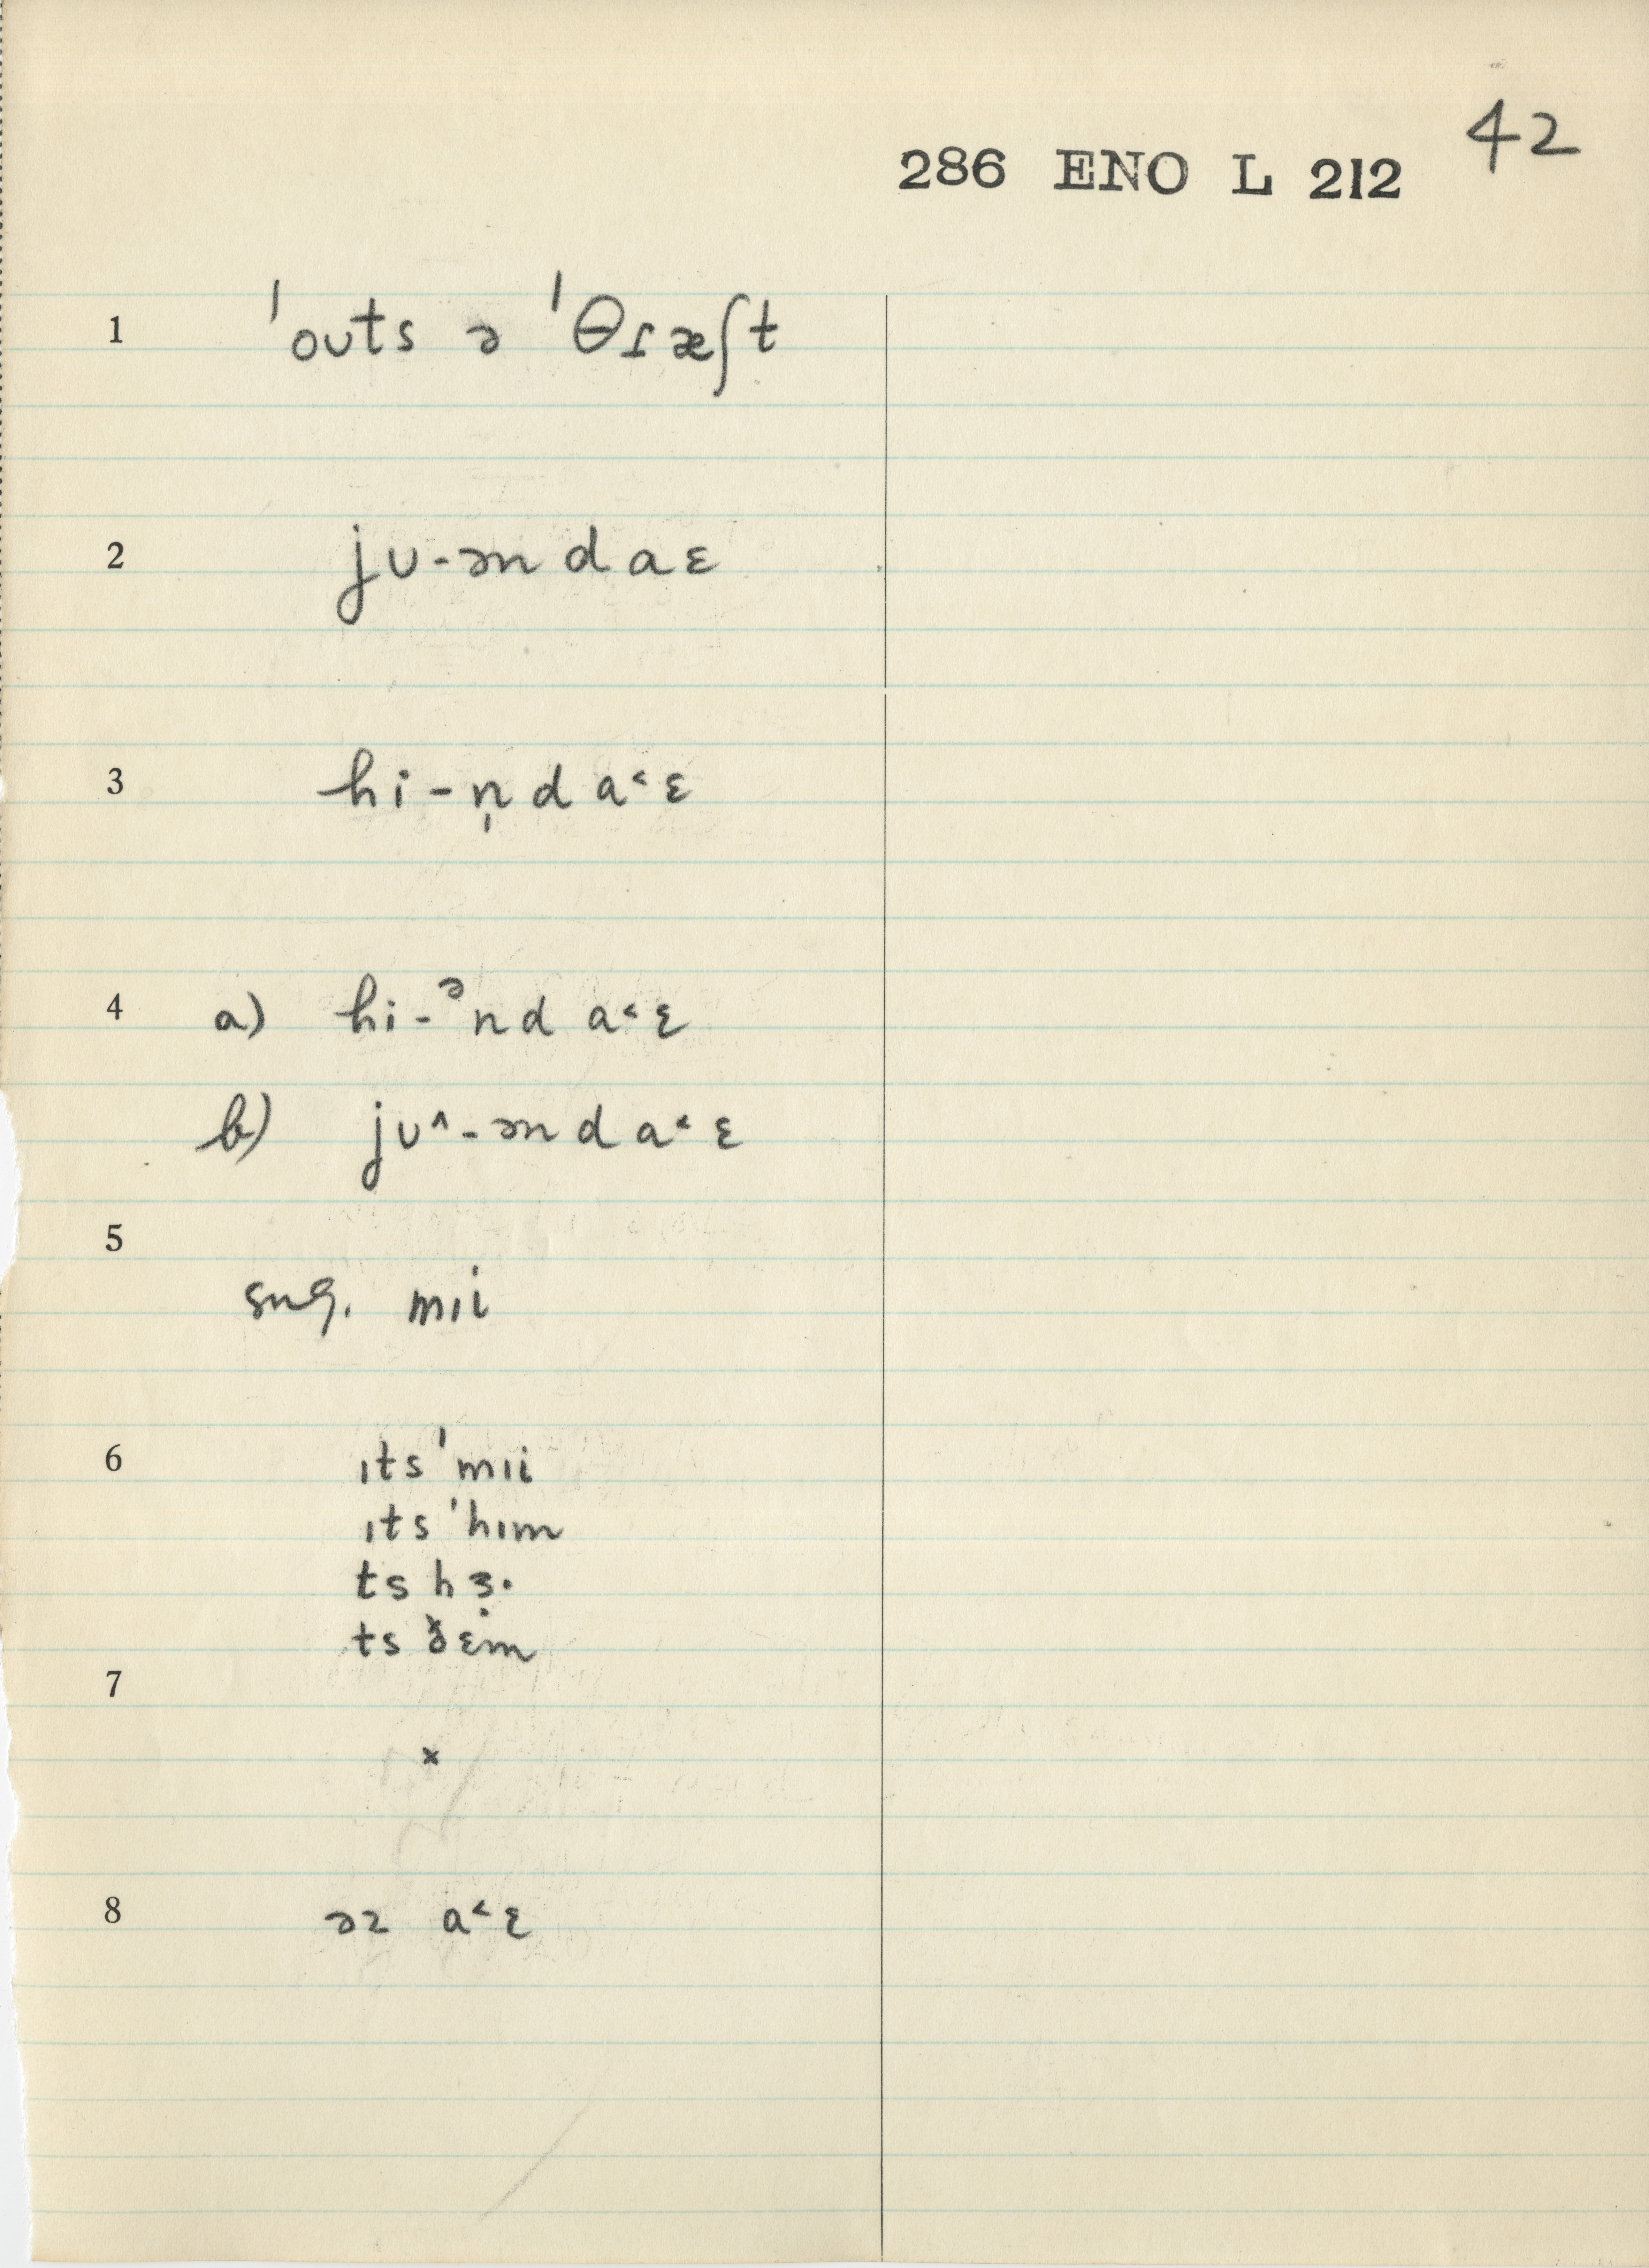 42
286 ENO L 212
1 ˈoʊts ə ˈθɾæʃt
2 jʊ-ən d a ɛ
3 hi-n̩ d a˂ ɛ
4 a) hi-ᵊn d a˂ ɛ
b) jʊ˄-ən d a˂ ɛ
5
sug. mɪi
6 ɪts ˈmɪi
ɪts ˈhɪm
ts h ɜ.
ts ð̌ ɛm
7
x
8 əz a˂ ɛ